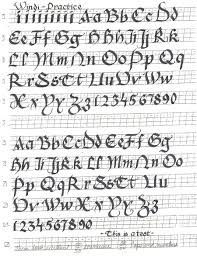 Windi - Practice
1111111 Aa Bb Cc Dd
Ee Ff Gg Hh Ii Jj Kk
Ll Mm Nn Oo Pp Qq
Rr Ss Tt Uu Vv Ww
Xx Yy Zz 1234567890
Aa Bb Cc Dd Ee Ff Gg
Hh Ii Jj Kk Ll Mm Nn Oo
Pp Qq Rr Ss Tt Uu Vv
Ww Xx Yy Zz
1234567890
- This is a test -